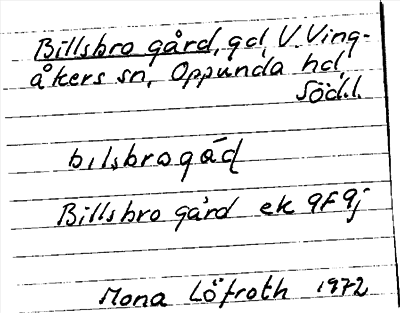 Billsbro gård, gd, V. Ving-
åkers sn, Oppunda hd,
Södl.
bilsbrogád
Billsbro gård ek 9F9j
Mona Löfroth 1972